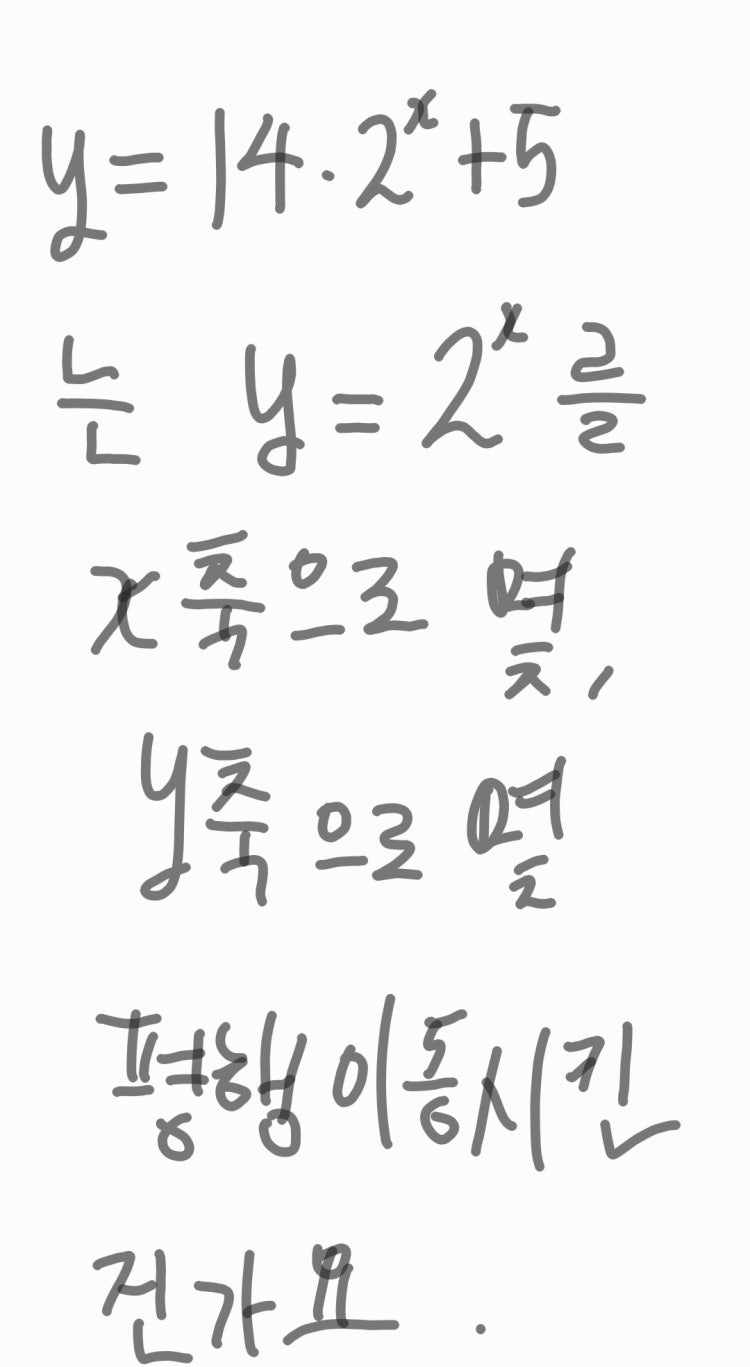 y = 14·2^x+5
는 y = 2^x 를
x축으로 몇,
y축으로 몇
평행이동시킨
건가요.